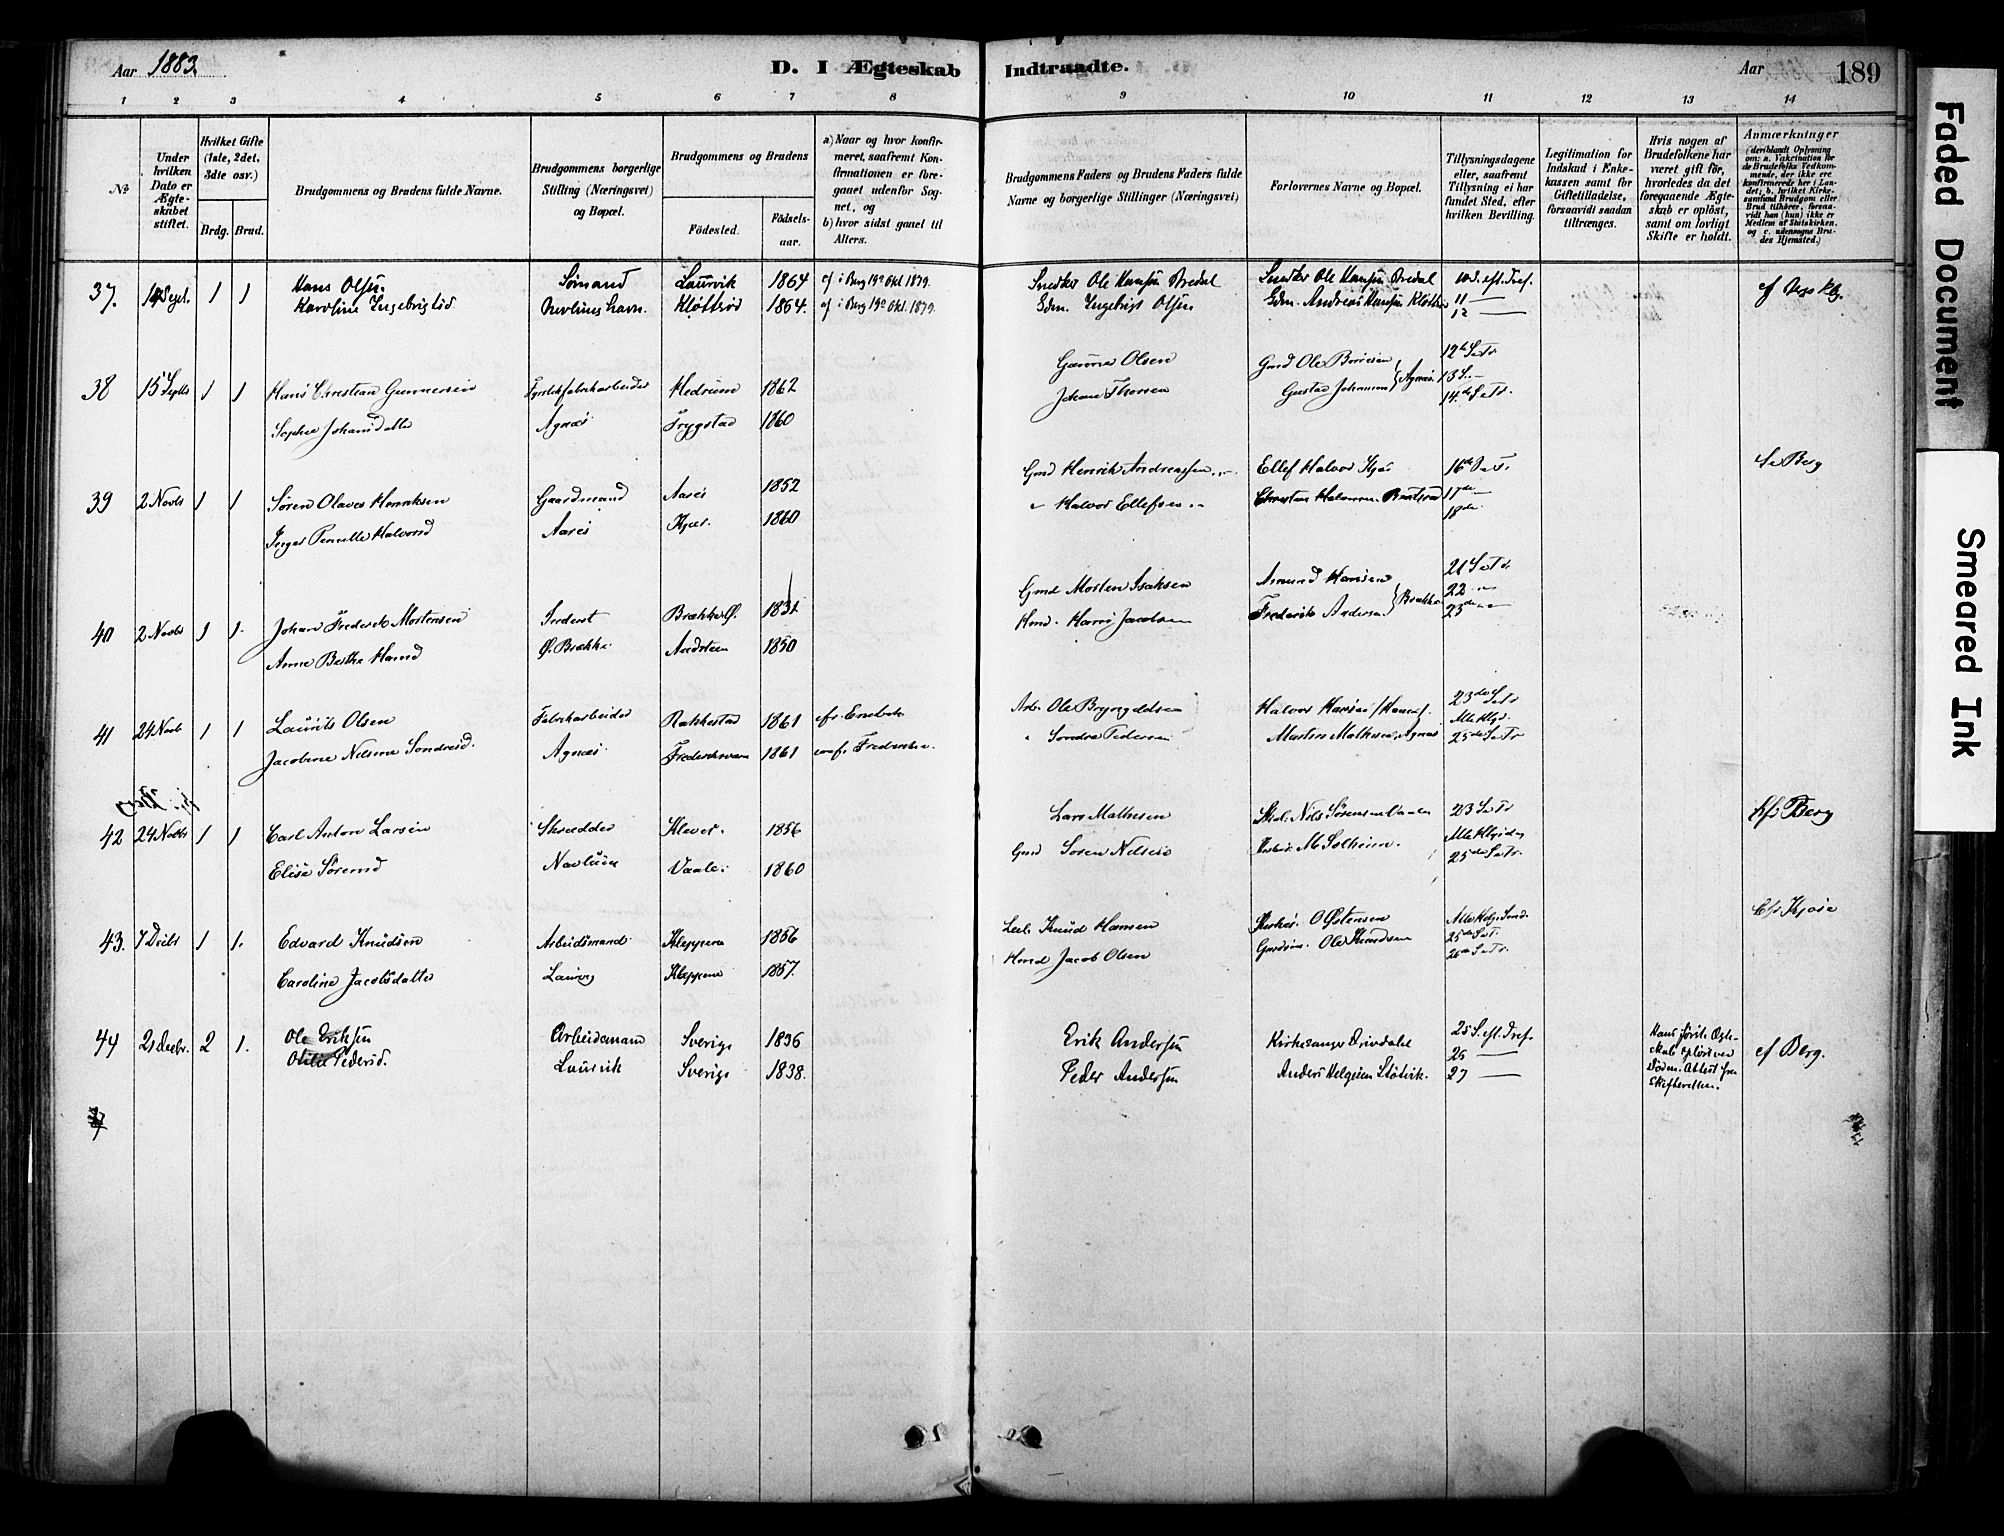 Aar 1883. D. I Ægteskab Indtraadte. Aar 189
1 2 3 4 5 6 7 8 9 10 11 12 13 14
No
Under hvilken Dato er Ægteskabet stiftet.
Hvilket Gifte (1ste, 2det, 3die osv.)
Brdg. Brud.
Brudgommens og Brudens fulde Navne.
Brudgommens borgerlige Stilling (Næringsvei) og Bopæl.
Brudgommens og Brudens
Födested. Födselsaar.
a) Naar og hvor konfirmeret, saafremt Konfirmationen er foregaaet udenfor Sognet, og
b) hvor sidst gaaet til Alters.
Brudgommens Faders og Brudens Faders fulde Navne og borgerlige Stillinger (Næringsvei)
Forlovernes Navne og Bopæl.
Tillysningsdagene eller, saafremt Tillysning ei har fundet Sted, efter hvilken Bevilling.
Legitimation for Indskud i Enkekassen samt for Giftetilladelse, forsaavidt saadan tiltrænges.
Hvis nogen af Brudefolkene har været gift för, hvorledes da det foregaaende Ægteskab er oplöst, samt om lovligt Skifte er holdt.
Anmærkninger (deriblandt Oplysning om: a. Vakcination for de Brudefolks Vedkommende, der ikke ere konfirmerede her i Landet; b. hvilket Kirkesamfund Brudgom eller Brud tilhörer, forsaavidt han (hun) ikke er Medlem af Statskirken, og c. udensogns Brudes Hjemsted.)
37. 14 Sept. 1 1 Hans Olsen Sømand Laurvik 1864 cf. i Berg 19 Okt. 1879. Snedker Ole Hansen Bredal Snedker Ole Hansen Bredal 10 S. eft. Tref.
Karoline Ingebrigtsd Nevlunghavn. Kløttrød 1864. cf. i Berg 19 Okt. 1879. Gdm. Ingebrigt Olsen Gdm. Andreas Hansen 11 —
12 —
38 15 Septbr 1 1 Hans Christian Gunnersen Fyrstikfabrikarbeider Hedrum 1862 Gunnar Olsen Gmd Ole 12te S e Tr
Sophie Johansdatter Agnæs Trygstad 1860 Johan Thorsen Gustav Johansen Agnæs 13 S. —
14de S e Tr.
39 2 Novbr 1 1 Søren Olaves Henriksen Gaardmand Aarøs 1852 Gmd Henrik Andreassen Ellef Halvor Kjær 16de S e T. Berg
Inger Pernille Halvorsd Aarøs Kjær. 1860 Halvor Ellefsen Christen Halvorsen 17de —
18de
40 2 Novbr 1 1. Johan Frederik Mortensen Inderst Brække Ø. 1831 Gmd Morten Isaksen Amund Hansen 21 S e Tr
Anne Berthe Hansd Ø. Brække 1850 Hans Jacobsen Frederik Andersen Brække 22 —
23de —
41 24 Novbr 1 1 Laurits Olsen Fabrikarbeider Rakkestad 1861 cfr. Enebak Arb. Ole Halvor Hansen 23de S e Tr
Jacobine Nilsine Sondresd. Agnæs Frederiksværn 1861 conf. Sondre Pedersen Martin Mathisen Agnæs Alle Helgd.
25de S e Tr
i Berg
42 24 Novbr 1 1 Carl Anton Larsen Skrædder Klever. 1856 Lars Mathisen Nils Sørensen Vaale 23 S e Tr Berg
Elise Sørensd Navlum Vaale. 1860 Gmd Søren Nilsen M Solheim. Alle
25de S e Tr.
43. 7 Decbr 1 1. Edvard Knudsen Arbeidsmand Kleppene 1856 Knud Hansen O Østensen Alle Helg. Sønd. Kjose
Caroline Jacobsdatter Laurvig Kleppene 1857. Jacob Olsen Ole Knudsen 25de S e T.
26de S e Tr.
44 21 Decbr. 2 1. Ole Eriksen Arbeidsmand Sverige 1836 Erik Andersen Kirkesanger Drivdahl 25 S. eft. Tref. Hans förste Ægteskab oplöst ved Döden. Attest fra Skifteretten. cf Berg.
Otilie Pedersd. Laurvik Sverige 1838. Peder Andersen Anders Helgesen 26 —
27 —
Faded Document
Smeared Ink